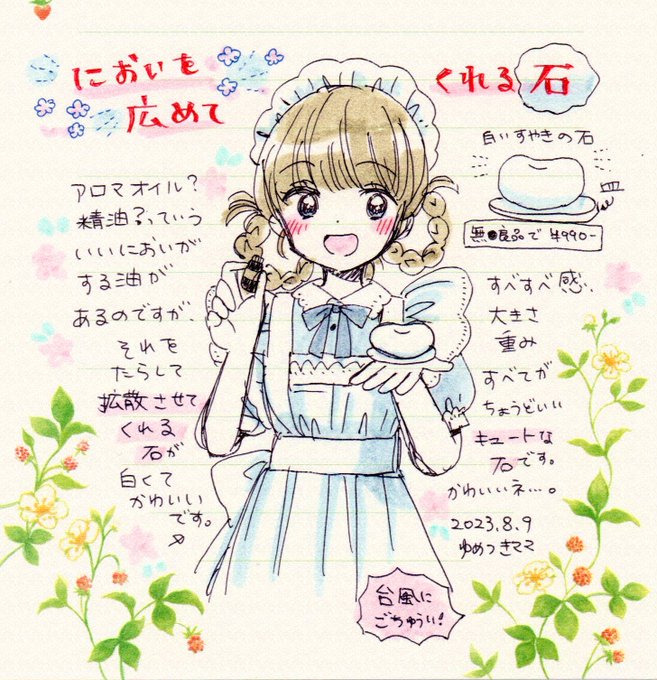 においを
広めて
くれる石
白いすやきの石
皿
無●良品で ¥990-
アロマオイル?
精油?っていう
いいにおいが
する油が
あるのですが、
それを
たらして
拡散させて
くれる
石が
白くて
かわいい
です。
すべすべ感、
大きさ
重み
すべてが
ちょうどいい
キュートな
石です。
かわいいネ…。
2023.8.9
ゆめつきママ
台風に
ごちゅうい!